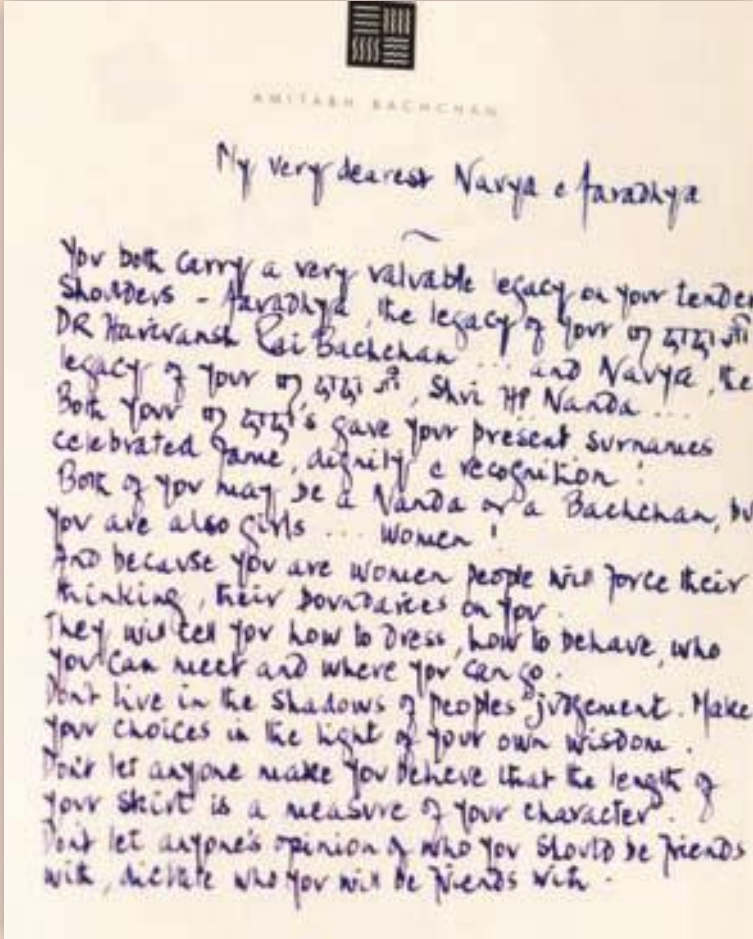 AMITABH BACHCHAN
My very dearest Navya & Aaradhya
You both carry a very valuable legacy on your tender
shoulders - Aaradhya, the legacy of your दादा जी
DR Harivansh Rai Bachchan ... and Navya, the
legacy of your दादा जी, Shri HP Nanda ...
Both your दादा's gave your present surnames
celebrated fame, dignity & recognition !
Both of you may be a Nanda or a Bachchan, bu
you are also girls ... women !
And because you are women people will force their
thinking, their boundaries on you.
They will tell you how to dress, how to behave, who
you can meet and where you can go.
Don't live in the shadows of peoples judgement. Make
your choices in the light of your own wisdom.
Don't let anyone make you believe that the length of
your skirt is a measure of your character.
Don't let anyone's opinion of who you should be friends
with, dictate who you will be friends with.